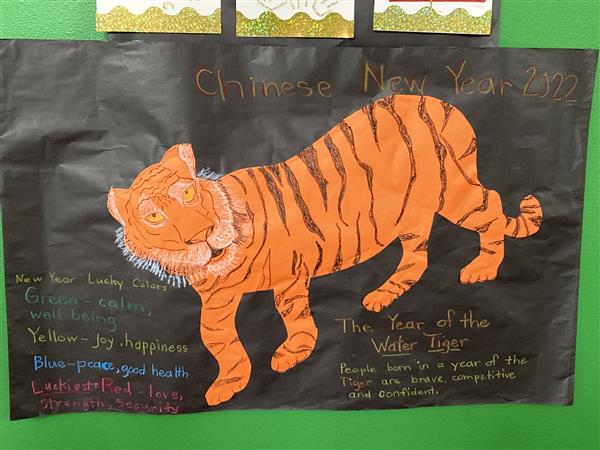 Chinese New Year 2022
New Year Lucky Colors
Green - calm,
well being
Yellow - joy, happiness
Blue - peace, good health
Luckiest = Red - love,
strength, security
The Year of the
Water Tiger
People born in a year of the
Tiger are brave, competitive
and confident.